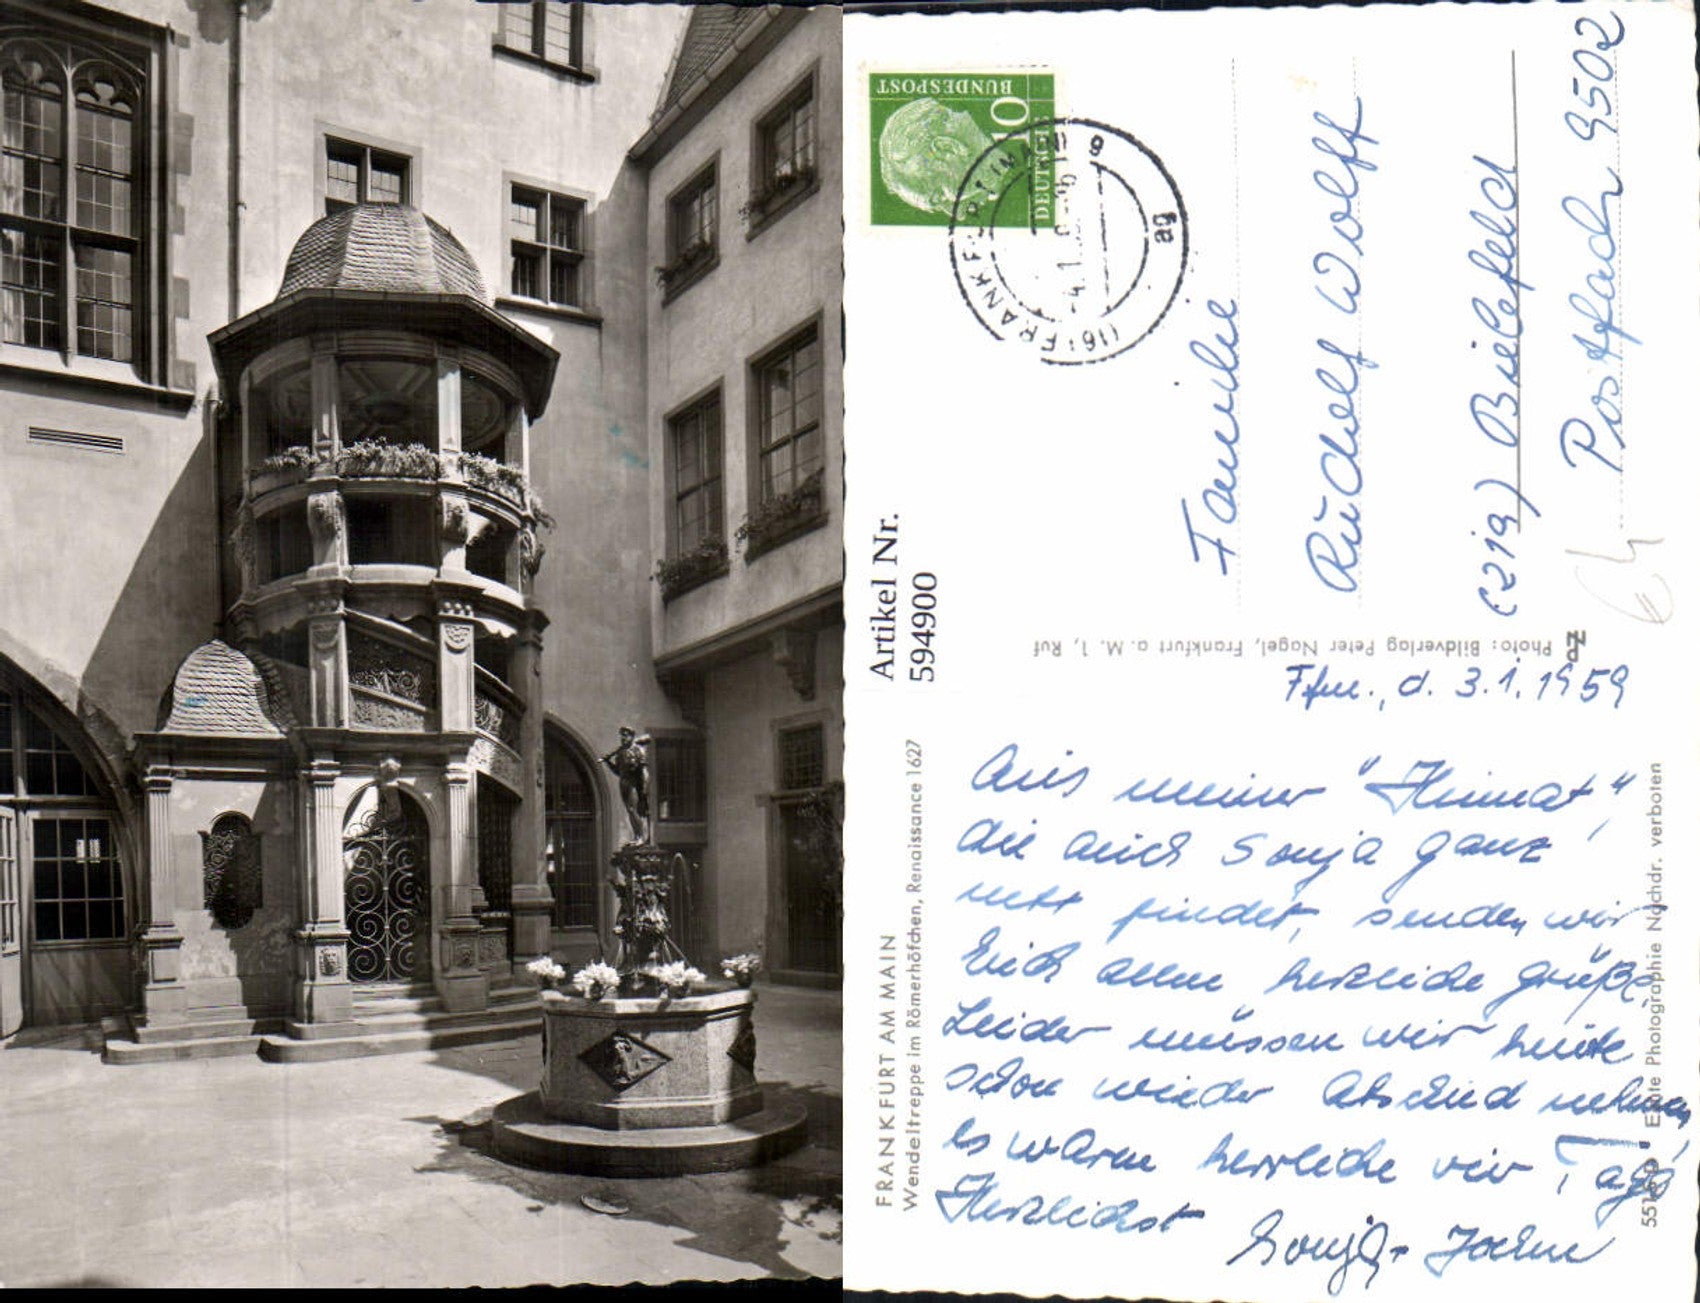 BUNDESPOST
10
DEUTSCHE
(16) FRANKFURT (MAIN) 9
ag
Artikel Nr.
594900
Familie
Rudolf Wolff
(21a) Bielefeld
Postfach 9502
Photo: Bildverlag Peter Nagel, Frankfurt a. M. 1, Ruf
FRANKFURT AM MAIN
Wendeltreppe im Römerhöfchen, Renaissance 1627
Ffm., d. 3.1.1959
Aus meiner "Heimat",
die auch Sonja ganz
nett findet, senden wir
Euch allen herzliche Grüße.
Leider müssen wir heute
schon wieder Abschied nehmen,
es waren herrliche vier Tage,
Herzlichst
Sonja + Jochen
Echte Photographie Nachdr. verboten